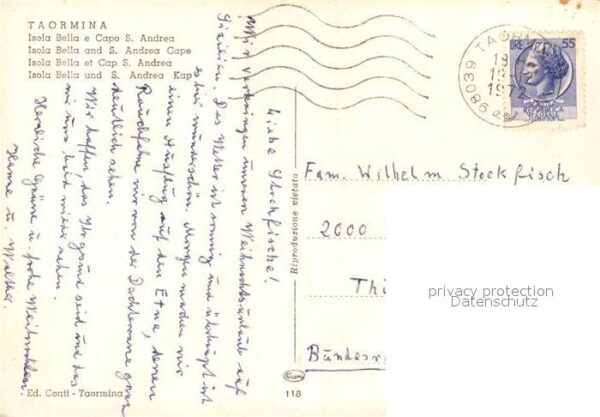 TAORMINA
Isola Bella e Capo S. Andrea
Isola Bella and S. Andrea Cape
Isola Bella et Cap S. Andrea
Isola Bella und S. Andrea Kap
Liebe Stockfische!
Wir verbringen unseren Weihnachtsurlaub auf
Sizilien. Das Wetter ist sonnig und überhaupt ist
es hier wunderschön. Morgen machen wir
einen Ausflug auf den Etna, dessen
Rauchfahne wir von der Dachterrasse ganz
deutlich sehen.
Wir hoffen, das Ihr gesund seid und das
wir uns bald wieder sehen.
Herzliche Grüße u. frohe Weihnachten
u. Walther.
98039 TAORMINA
1972
LIRE 55
REPUBBLICA
ITALIANA
Fam. Wilhelm Stockfisch
2000
Bundesr
Riproduzione vietata
privacy protection
Datenschutz
Ed. Conti - Taormina
118